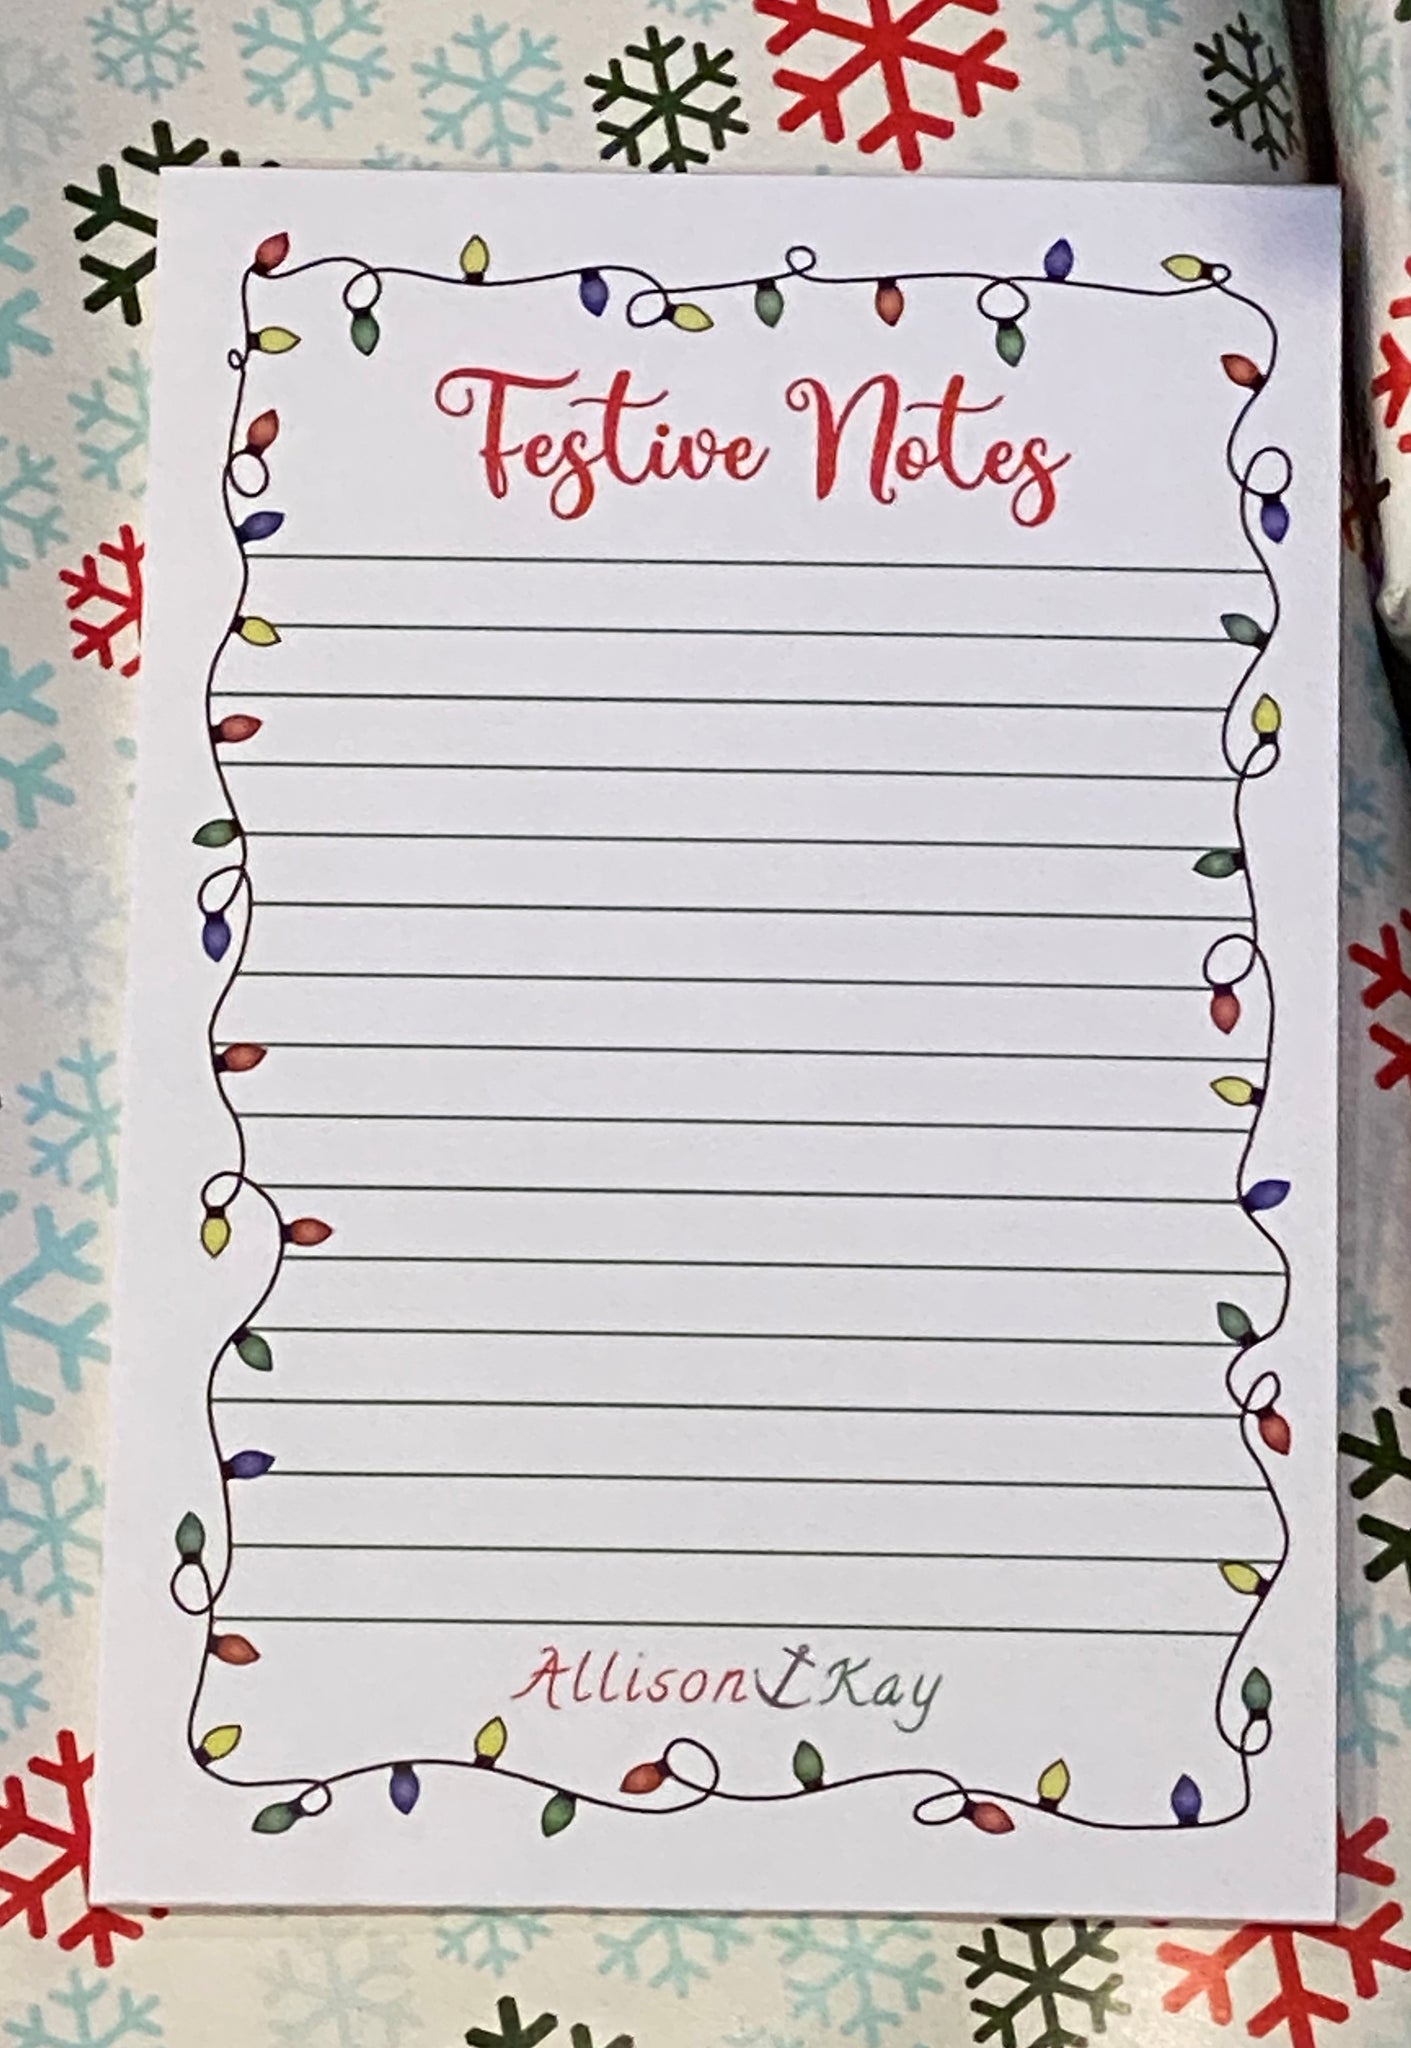 Festive Notes
Allison Kay